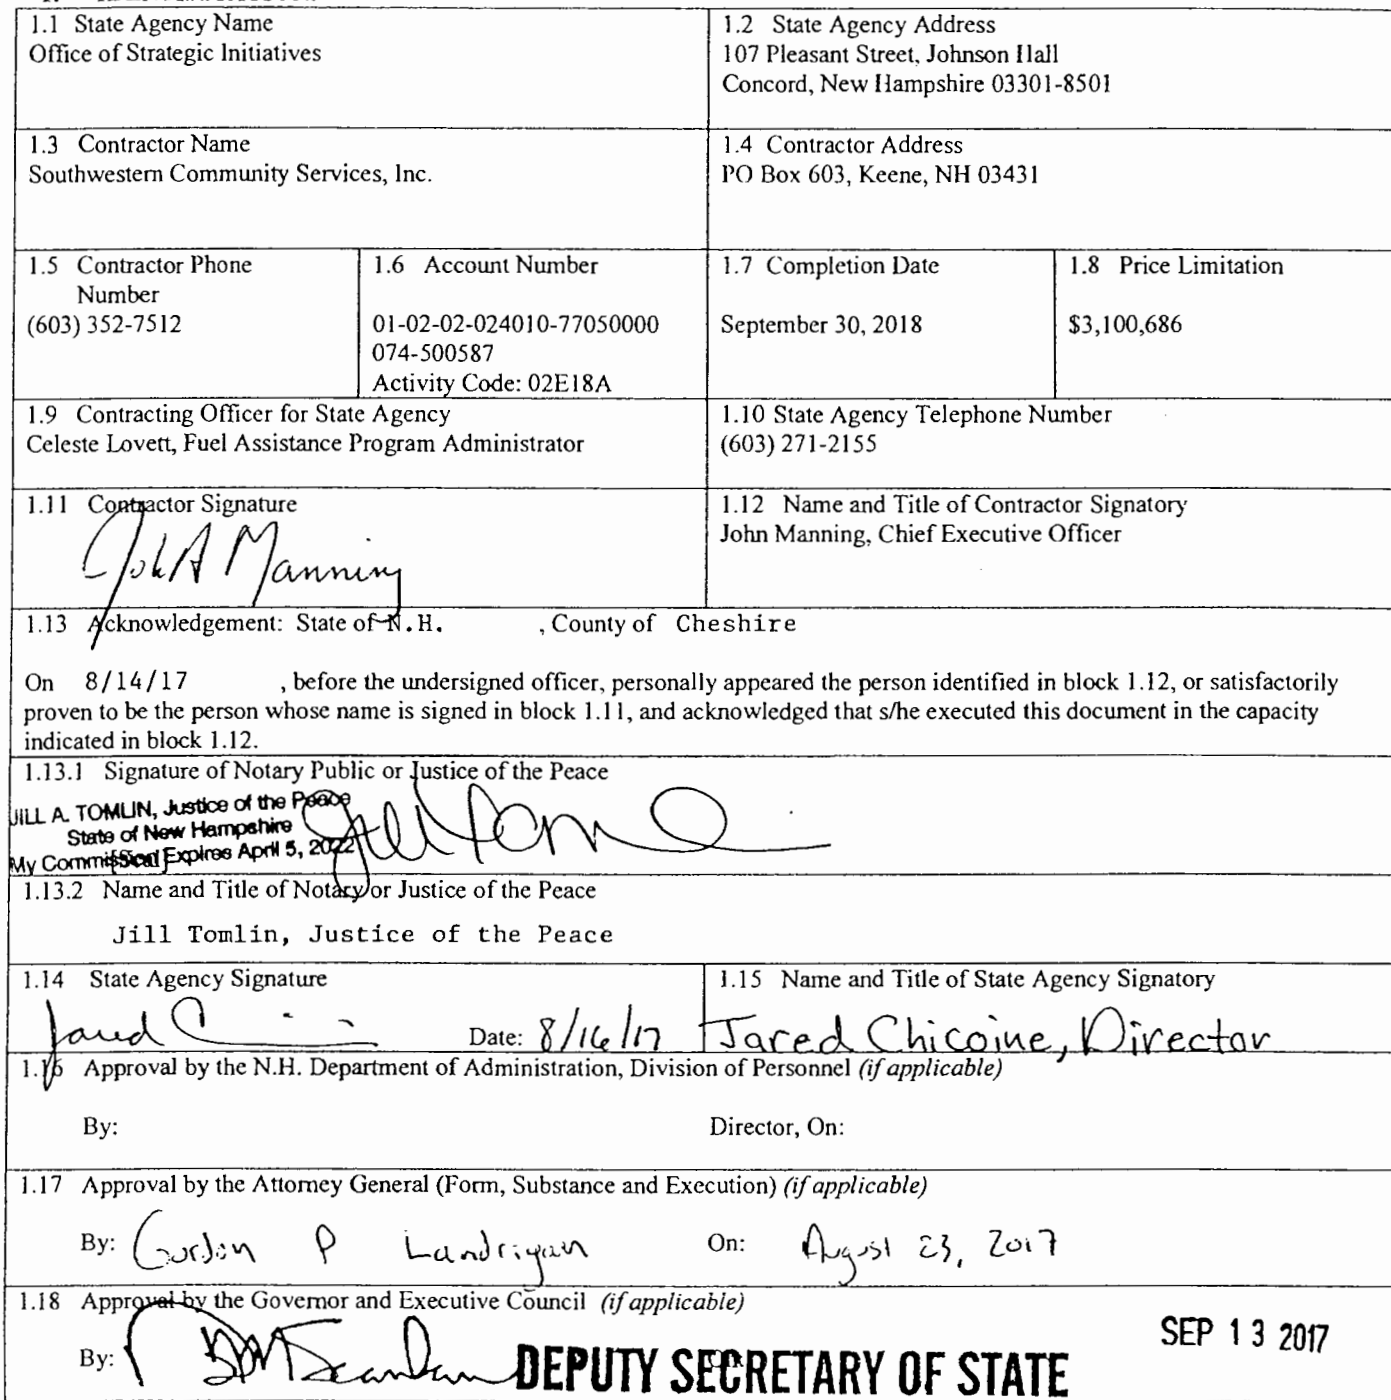 1.1 State Agency Name
Office of Strategic Initiatives
1.2 State Agency Address
107 Pleasant Street, Johnson Hall
Concord, New Hampshire 03301-8501
1.3 Contractor Name
Southwestern Community Services, Inc.
1.4 Contractor Address
PO Box 603, Keene, NH 03431
1.5 Contractor Phone
Number
(603) 352-7512
1.6 Account Number
01-02-02-024010-77050000
074-500587
Activity Code: 02E18A
1.7 Completion Date
September 30, 2018
1.8 Price Limitation
$3,100,686
1.9 Contracting Officer for State Agency
Celeste Lovett, Fuel Assistance Program Administrator
1.10 State Agency Telephone Number
(603) 271-2155
1.11 Contractor Signature
John A Manning
1.12 Name and Title of Contractor Signatory
John Manning, Chief Executive Officer
1.13 Acknowledgement: State of N.H. , County of Cheshire
On 8/14/17 , before the undersigned officer, personally appeared the person identified in block 1.12, or satisfactorily
proven to be the person whose name is signed in block 1.11, and acknowledged that s/he executed this document in the capacity
indicated in block 1.12.
1.13.1 Signature of Notary Public or Justice of the Peace
JILL A. TOMLIN, Justice of the Peace
State of New Hampshire
My Commission Expires April 5, 2022
[Seal]
1.13.2 Name and Title of Notary or Justice of the Peace
Jill Tomlin, Justice of the Peace
1.14 State Agency Signature
Jared C Date: 8/16/17
1.15 Name and Title of State Agency Signatory
Jared Chicoine, Director
1.16 Approval by the N.H. Department of Administration, Division of Personnel (if applicable)
By: Director, On:
1.17 Approval by the Attorney General (Form, Substance and Execution) (if applicable)
By: Gordon P Landrigan On: August 23, 2017
1.18 Approval by the Governor and Executive Council (if applicable)
By: DEPUTY SECRETARY OF STATE SEP 13 2017